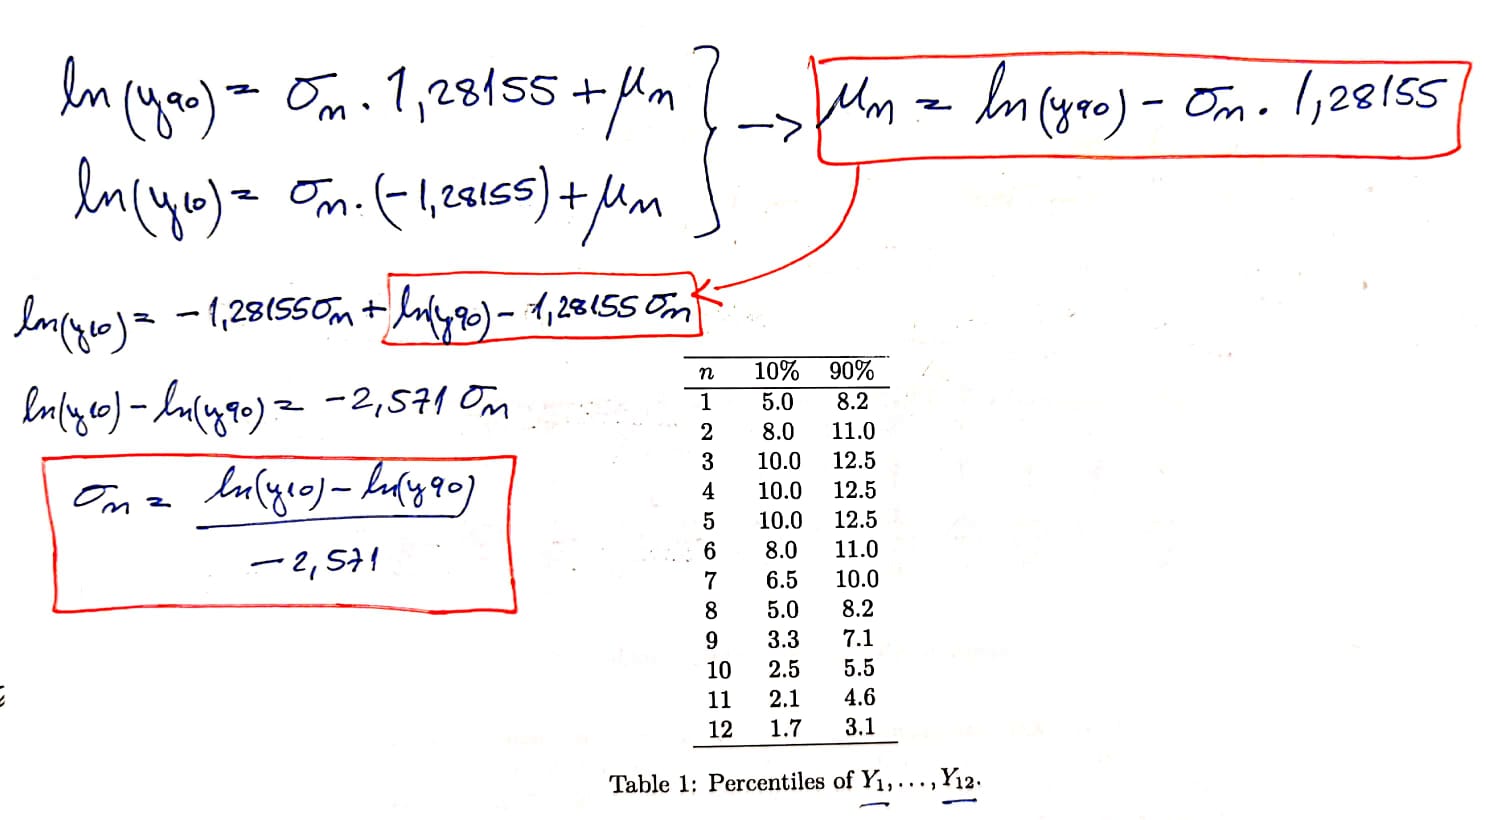 ln(y90) = σn . 1,28155 + μn } → μn = ln(y90) - σn . 1,28155
ln(y10) = σn . (-1,28155) + μn
ln(y10) = -1,28155σn + ln(y90) - 1,28155 σn
ln(y10) - ln(y90) = -2,571 σn
σn = ln(y10) - ln(y90)
-2,571
n 10% 90%
1 5.0 8.2
2 8.0 11.0
3 10.0 12.5
4 10.0 12.5
5 10.0 12.5
6 8.0 11.0
7 6.5 10.0
8 5.0 8.2
9 3.3 7.1
10 2.5 5.5
11 2.1 4.6
12 1.7 3.1
Table 1: Percentiles of Y1, . . . , Y12.